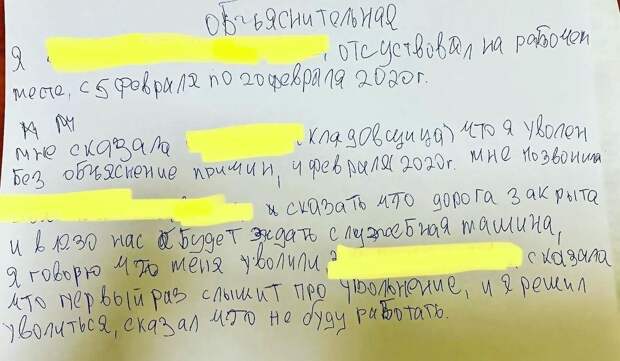 Объяснительная
Я , отсуствовал на рабочем
месте, с 5 февраля по 20 февраля 2020г.
мне сказала кладовщица) что я уволен
без объяснение причин, 4 февраля 2020г. мне позвонила
и сказать что дорога закрыта
и в 1230 нас будет ждать служебная машина,
я говорю что меня уволили, сказала
что первый раз слышит про увольнение, и я решил
уволиться, сказал что не буду работать.